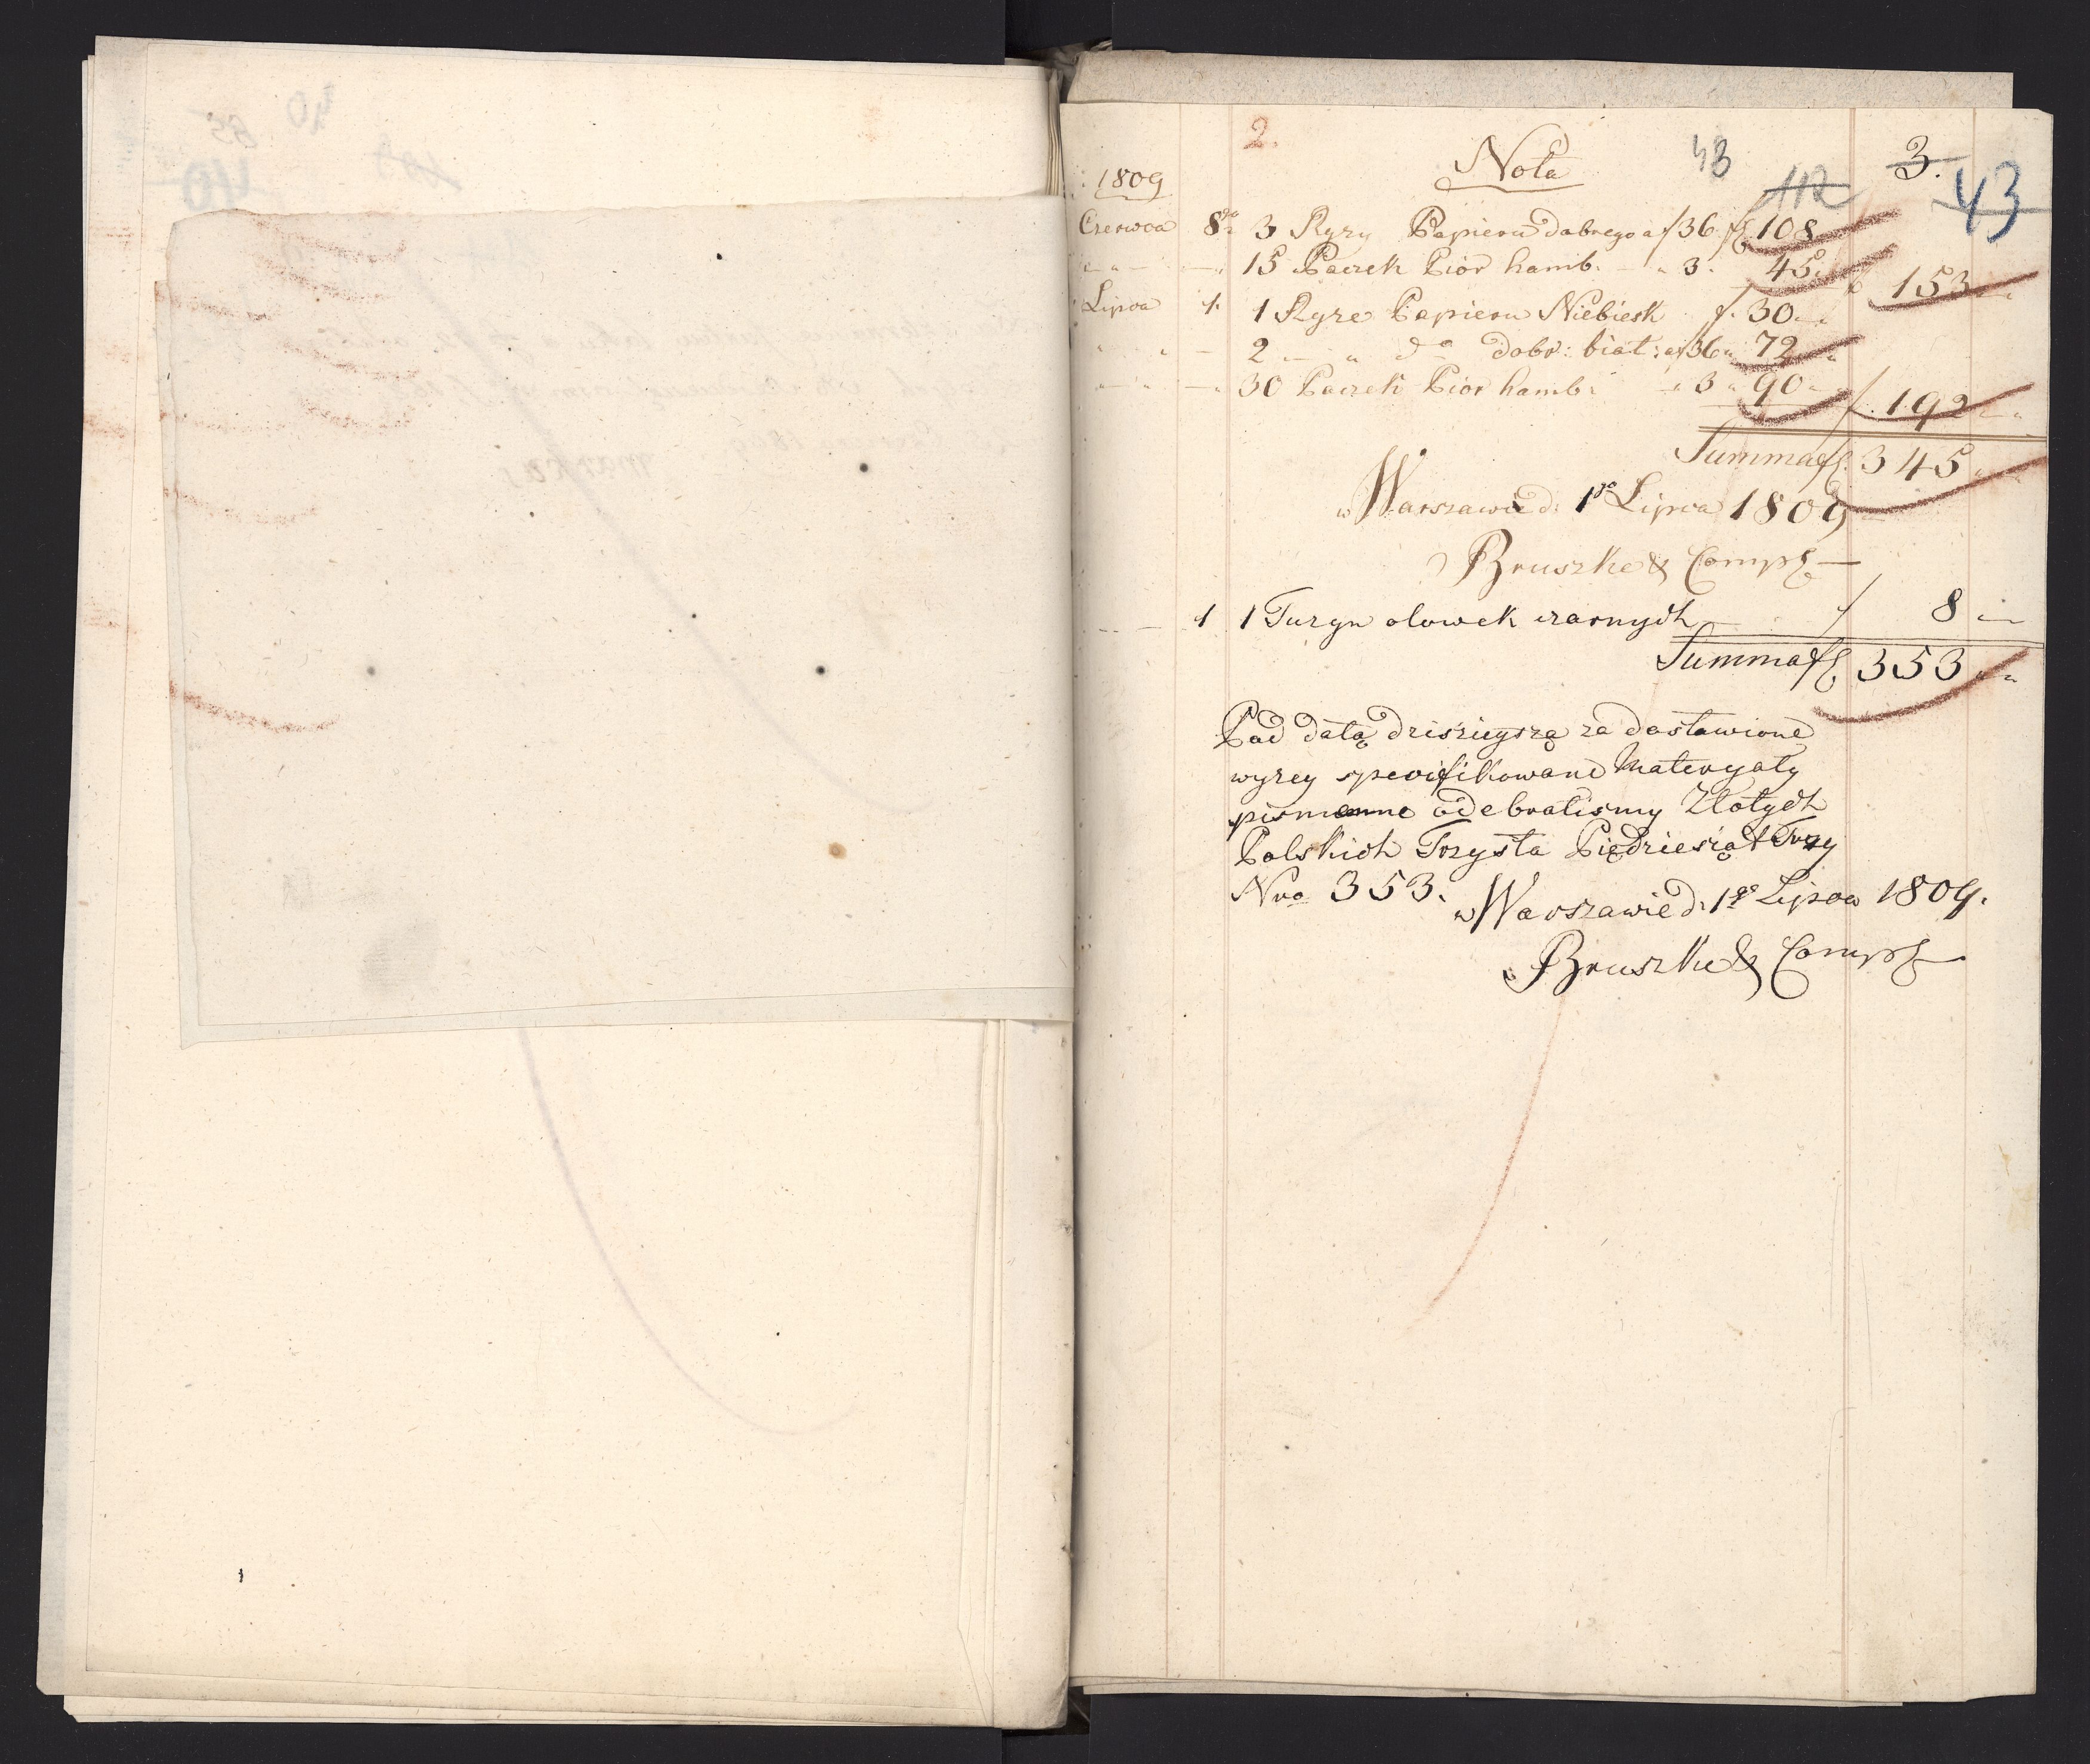 2.
Nota
43
112
3.
43
1809
Czerwca 8go 3 Ryzy Papieru dobrego a f 36 fl 108
15 Paczek Pior hamb. " 3. 45 " f 153
Lipca 1 1 Ryze Papieru Niebiesk f. 30
2 " do dobr: biał: a f 36 " 72
30 Paczek Pior hamb: " 3 " 90 f. 192
Summa fl. 345
w Warszawie d: 1go Lipca 1809
Bruszke & Comp
1 1 Tuzyn olowek czarnych f 8
Summa fl 353
Pod datą dzisieyszą za dostawione
wyzey specifikowane Materyały
pismienne odebralismy Złotych
Polskich Trzysta Piędziesiąt Trzy
Nro 353.
w Warszawie d. 1go Lipca 1809.
Bruszke & Comp